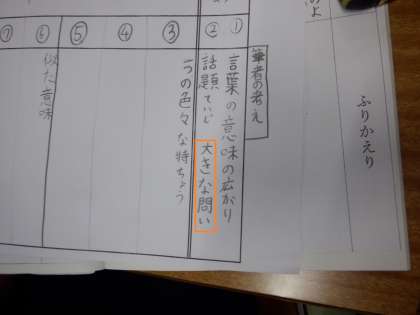 ふりかえり
筆者の考え
①
言葉の意味の広がり
②
話題ていじ 大きな問い
③
1つの色々な特ちょう
④
⑤
⑥
似た意味
⑦